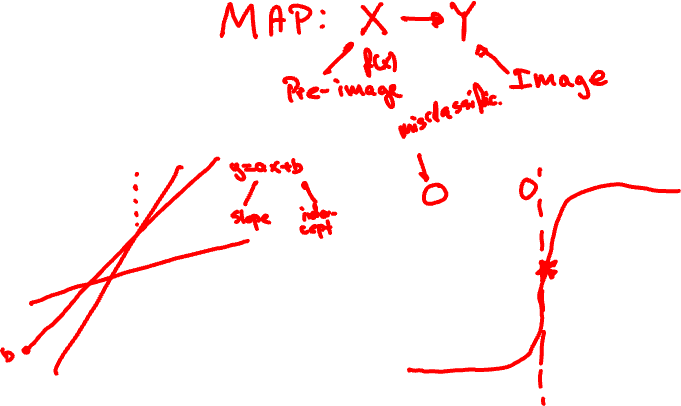 MAP: X → Y
f(x)
Pre-image
Image
misclassific.
y=ax+b
slope
inter-
cept
O
O
b